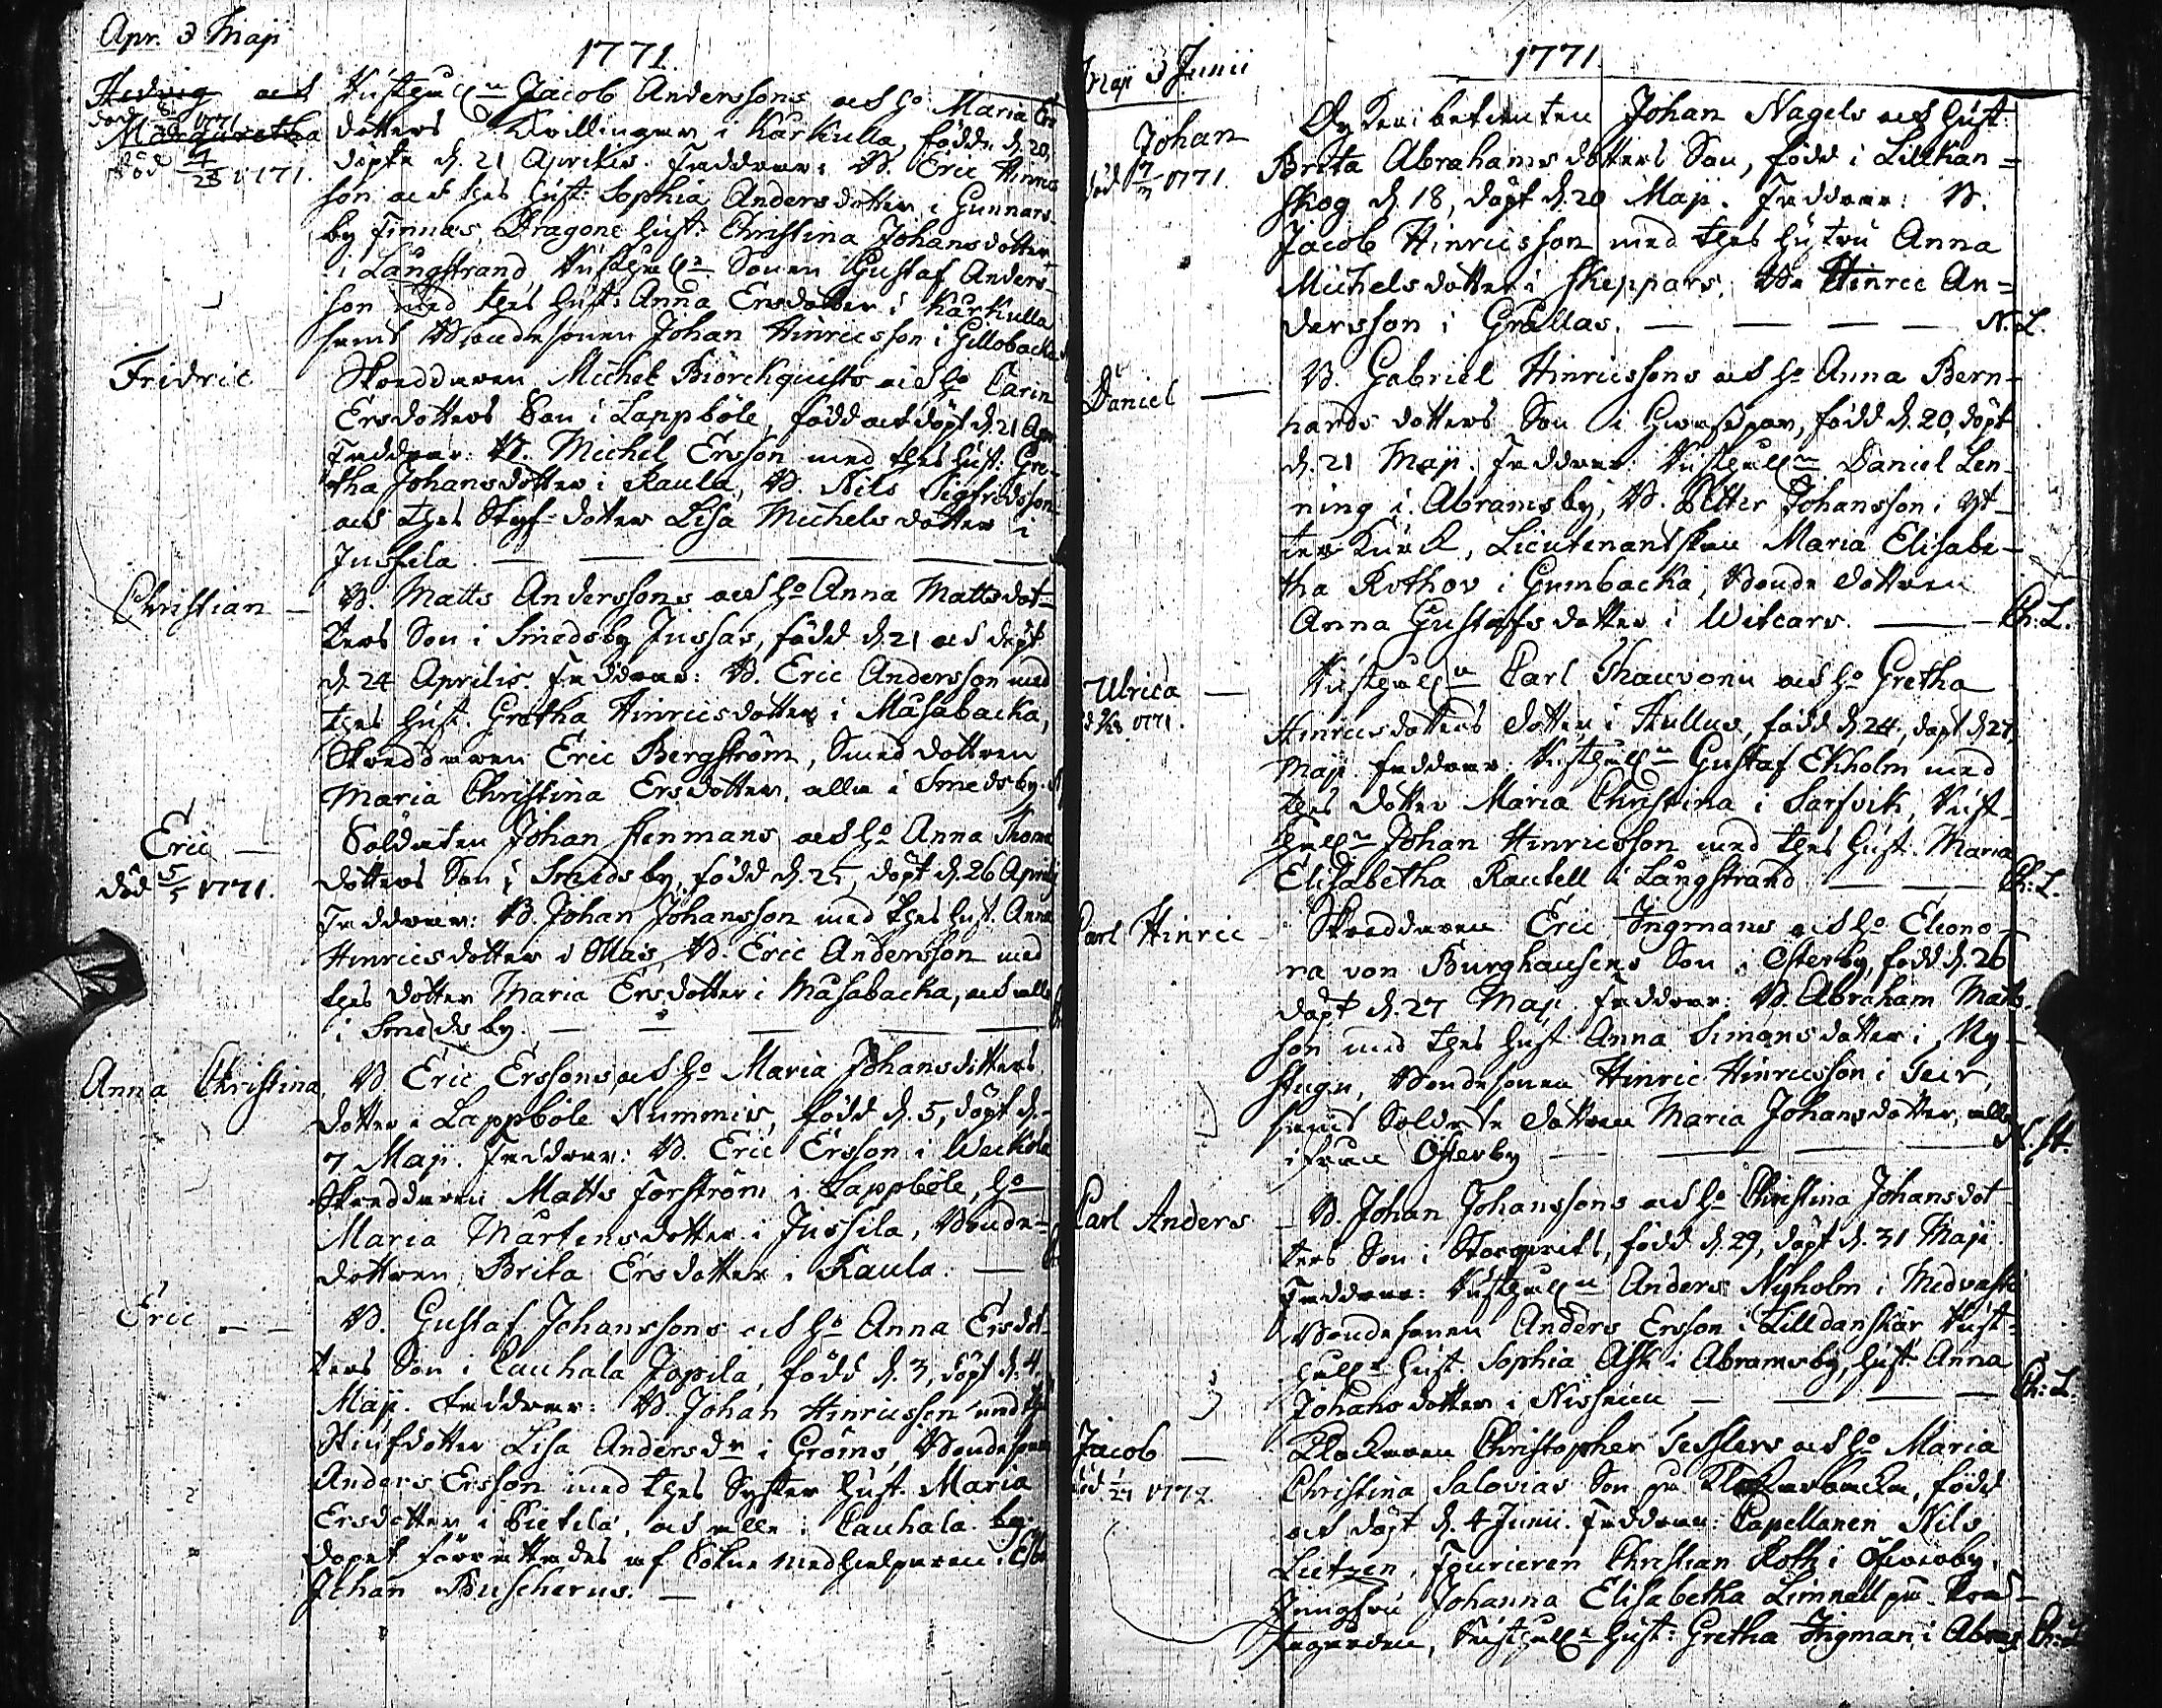 Apr. & Maji
1771.
Hedvig och
död 1771
Margaretha
död 4/28 1771.
Rusthåll:n Jacob Anderssons och h:o Maria Ers
dotters Tvillingar i Karkulla, födde d. 20,
döpte d. 21 Aprilis. Faddrar: B. Eric Hinrics
son och thes hust: Sophia Andersdotter i Gunnars
by Finnas, Dragone hust: Christina Johansdotter
i Långstrand, Rusthåll:s Sonen Gustaf Anders-
son med thes hust: Anna Ersdotter i Karkulla
samt Bondesonen Johan Hinricsson i Gillobacka
Fridric
Skreddaren Michel Biörckquists och h:o Carin
Ersdotters Son i Lappböle, född och döpt d. 21 Apr.
Faddrar: B. Michel Ersson med thes hust: Gre-
tha Johansdotter i Raula, B. Nils Sigfredsson
och thes Styf-dotter Lisa Michelsdotter i
Jussila
Christian
B. Matts Anderssons och h:o Anna Mattsdot-
ters Son i Smedsby Jussas, född d. 21 och döpt
d. 24 Aprilis. Faddrar: B. Eric Andersson med
thes hust. Gretha Hinricsdotter i Måsabacka,
Skreddaren Eric Bergström, Smed dottren
Maria Christina Ersdotter, alla i Smedsby.
Eric
död 5/5 1771.
Soldaten Johan Stenmans och h:o Anna Thoma
dotters Son i Smedsby, född d. 25, döpt d. 26 Aprilis
Faddrar: B. Johan Johansson med thes hust. Anna
Hinricsdotter i Ollas, B. Eric Andersson med
thes dotter Maria Ersdotter i Måsabacka, och alla
i Smedsby.
Anna Christina
B. Eric Erssons och h:o Maria Johansdotters
dotter i Lappböle Nummis, född d. 5, döpt d.
7 Maji. Faddrar: B. Eric Ersson i Weikola
Skreddaren Matts Forström i Lappböle, h:o
Maria Mårtensdotter i Jussila, Bonde-
dottren Brita Ersdotter i Raula.
Eric
B. Gustaf Johanssons och h:o Anna Ersdot-
ters Son i Cauhala Jopila, född d. 3, döpt d. 4
Maji. Faddrar: B. Johan Hinricsson med thes
Stiufdotter Lisa Andersd:r i Gröms, Bondesonen
Anders Ersson med thes Syster hust. Maria
Ersdotter i Pietilä, och alla i Cauhala by.
Dopet förrättades af Sokne Medhielparen i Esbo
Johan Buscherus.
Maji & Junii
1771.
Johan
död 7/7 1771.
Johan Nagels och hust:
Brita Abrahamsdotters Son, född i Lillkan=
skog d. 18, döpt d. 20 Maji. Faddrar: B.
Jacob Hinricsson med thes hustru Anna
Michelsdotter i Skeppars, B. Hinric An=
dersson i Grellas.
N. L.
Daniel
B. Gabriel Hinricssons och h:o Anna Bern-
hards dotters Son i född d. 20, döpt
d. 21 Maji. Faddrar: Rusthåll:n Daniel Len-
ning i Abramsby, B. Petter Johansson i Yt-
ter Kurck, Lieutenantskan Maria Elisabe-
tha Rothov i Gumbacka, Bonde dottren
Anna Gustafsdotter i Witcars.
Ch: L.
Ulrica
1771.
Rusthåll:n Carl Thauvonii och h:o Gretha
Hinricsdotters dotter i Hullus, född d. 24, döpt d. 27
Maji. Faddrar: Rusthåll:n Gustaf Ekholm med
thes dotter Maria Christina i Sarfvik, Rust-
håll:n Johan Hinricsson med thes hust. Maria
Elisabetha Rautell i Långstrand
Ch: L.
Carl Hinric
Skreddaren Eric Ingmans och h:o Eleono-
ra von Burghausens Son i Österby, född d. 26
döpt d. 27 Maji. Faddrar: B. Abraham Matts
son med thes hust. Anna Simonsdotter i Ny-
stugu, Bondesonen Hinric Hinricsson i Teir,
samt Soldate dottren Maria Johansdotter, alla
ifrån Österby
N. St.
Carl Anders
B. Johan Johanssons och h:o Christina Johansdot-
ters Son i född d. 29, döpt d. 31 Maji
Faddrar: Rusthåll:n Anders Nyholm i Medvasti
Bondesonen Anders Ersson i Lilldanskär, Rust-
håll:s hust. Sophia Ask i Abramsby, hust. Anna
Johansdotter i Nissniku
Ch: L.
Jacob
död 1/21 1772.
Klockaren Christopher Tesslers och h:o Maria
Christina Salovias Son på Klockarbacka, född
och döpt d. 4 Junii. Faddrar: Capellanen Nils
Lietzen, Fourieren Christian Roth i
Jungfru Johanna Elisabetha Limnell på Pre-
stegården, Rusthåll:s hust: Gretha Ingman i Abrams
Ch: L